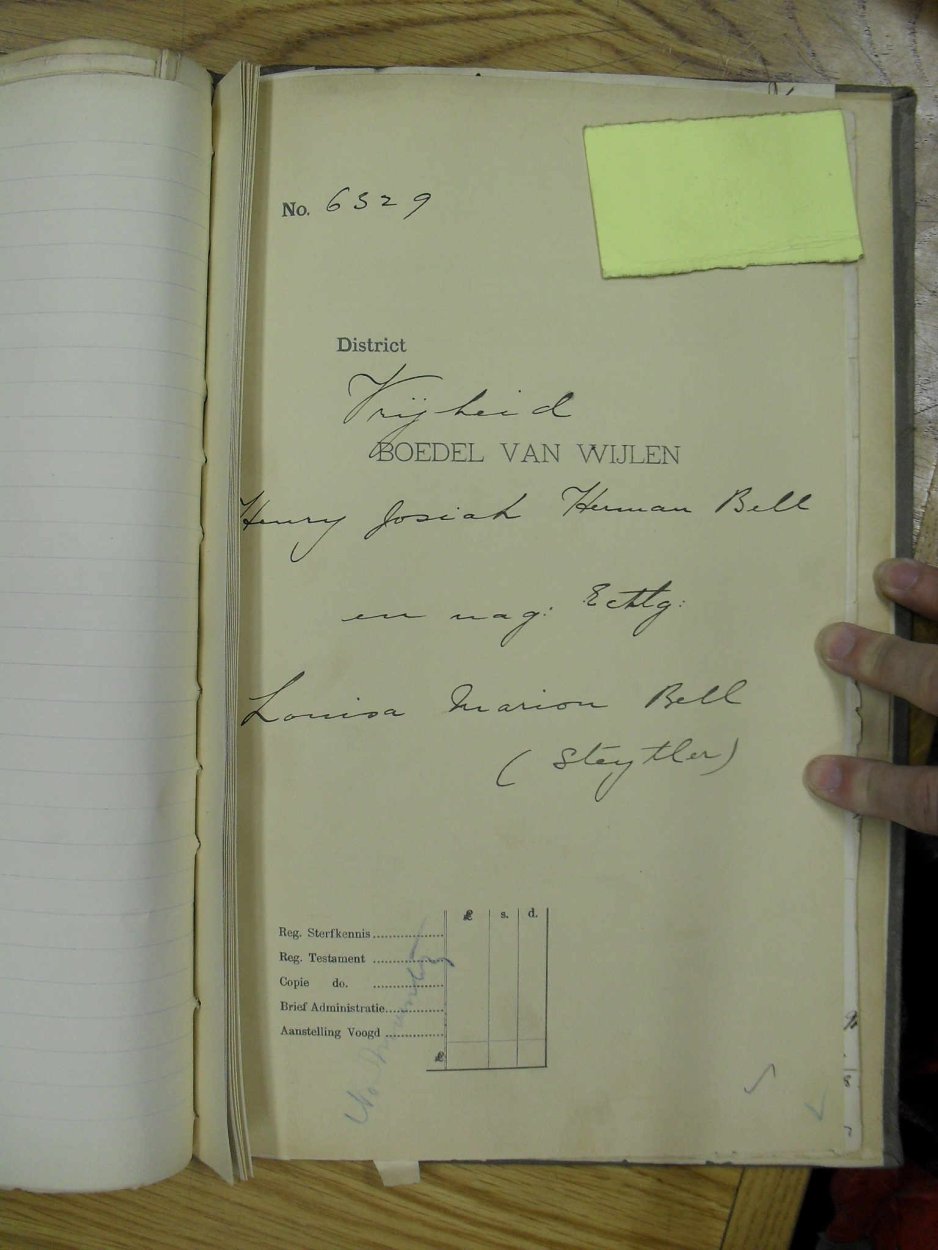 No. 6329
District
Vrijheid
BOEDEL VAN WIJLEN
Henry Josiah Herman Bell
en nag: Echtg:
Louisa Marion Bell
(Steytler)
£ s. d.
Reg. Sterfkennis
Reg. Testament
Copie do.
Brief Administratie
Aanstelling Voogd
£